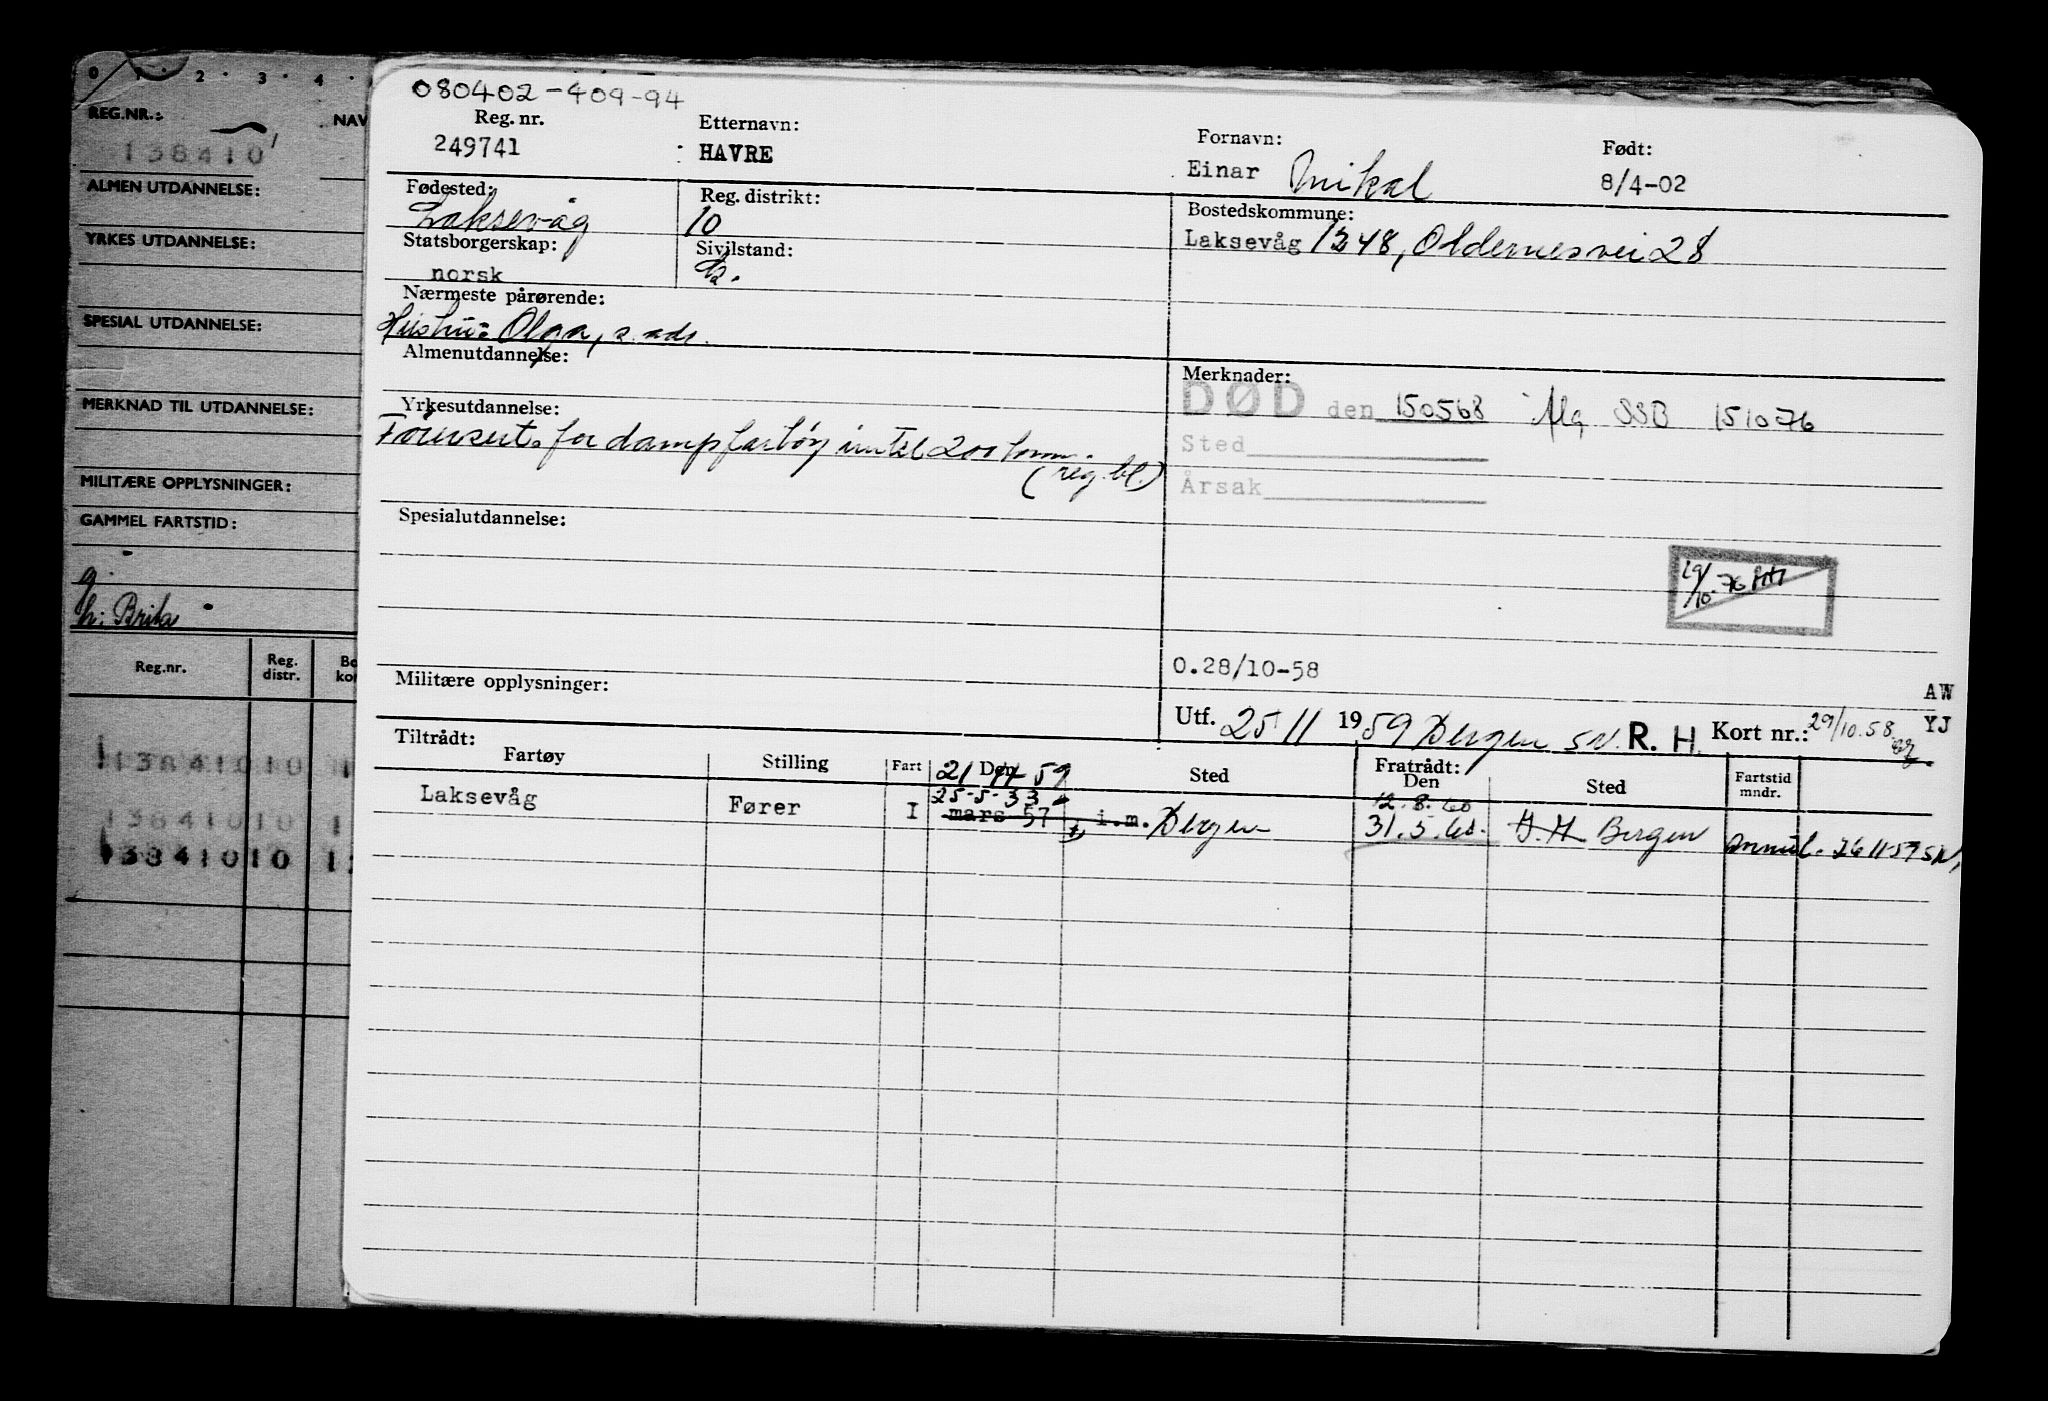 0 1 · 2 · 3 · 4 ·
REG.NR.: NAV
138410
ALMEN UTDANNELSE:
YRKES UTDANNELSE:
SPESIAL UTDANNELSE:
MERKNAD TIL UTDANNELSE:
MILITÆRE OPPLYSNINGER:
GAMMEL FARTSTID:
g.
h: Brita
Reg.nr. Reg. distr. Bo kor
13841010 1
13841010 1
13841010 1
080402-409-94
Reg. nr. Etternavn: Fornavn: Født:
249741 HAVRE Einar Mikal 8/4-02
Fødested: Reg. distrikt: Bostedskommune:
Laksevåg 10 Laksevåg 1248, Oldernesvei 28
Statsborgerskap: Sivilstand:
norsk G.
Nærmeste pårørende:
Hustru: Olga, s. adr.
Almenutdannelse: Merknader:
DØD den 150568 Mlg SSB 151076
Yrkesutdannelse: Sted
Førersert. for dampfartøy inntil 200 tonn.
(reg. bl.) Årsak
Spesialutdannelse:
29/10-76
O.28/10-58
Militære opplysninger: AW
Utf. 25/11 1959 Bergen SN. R. H. Kort nr.: 29/10.58. YJ
Tiltrådt: Fratrådt:
Fartøy Stilling Fart Den Sted Den Sted Fartstid mndr.
21 11 59
25-5-33 12.8.60
Laksevåg Fører I mars 57 i.m. Bergen 31.5.60. Bergen Annul. 26 11 59 SN,